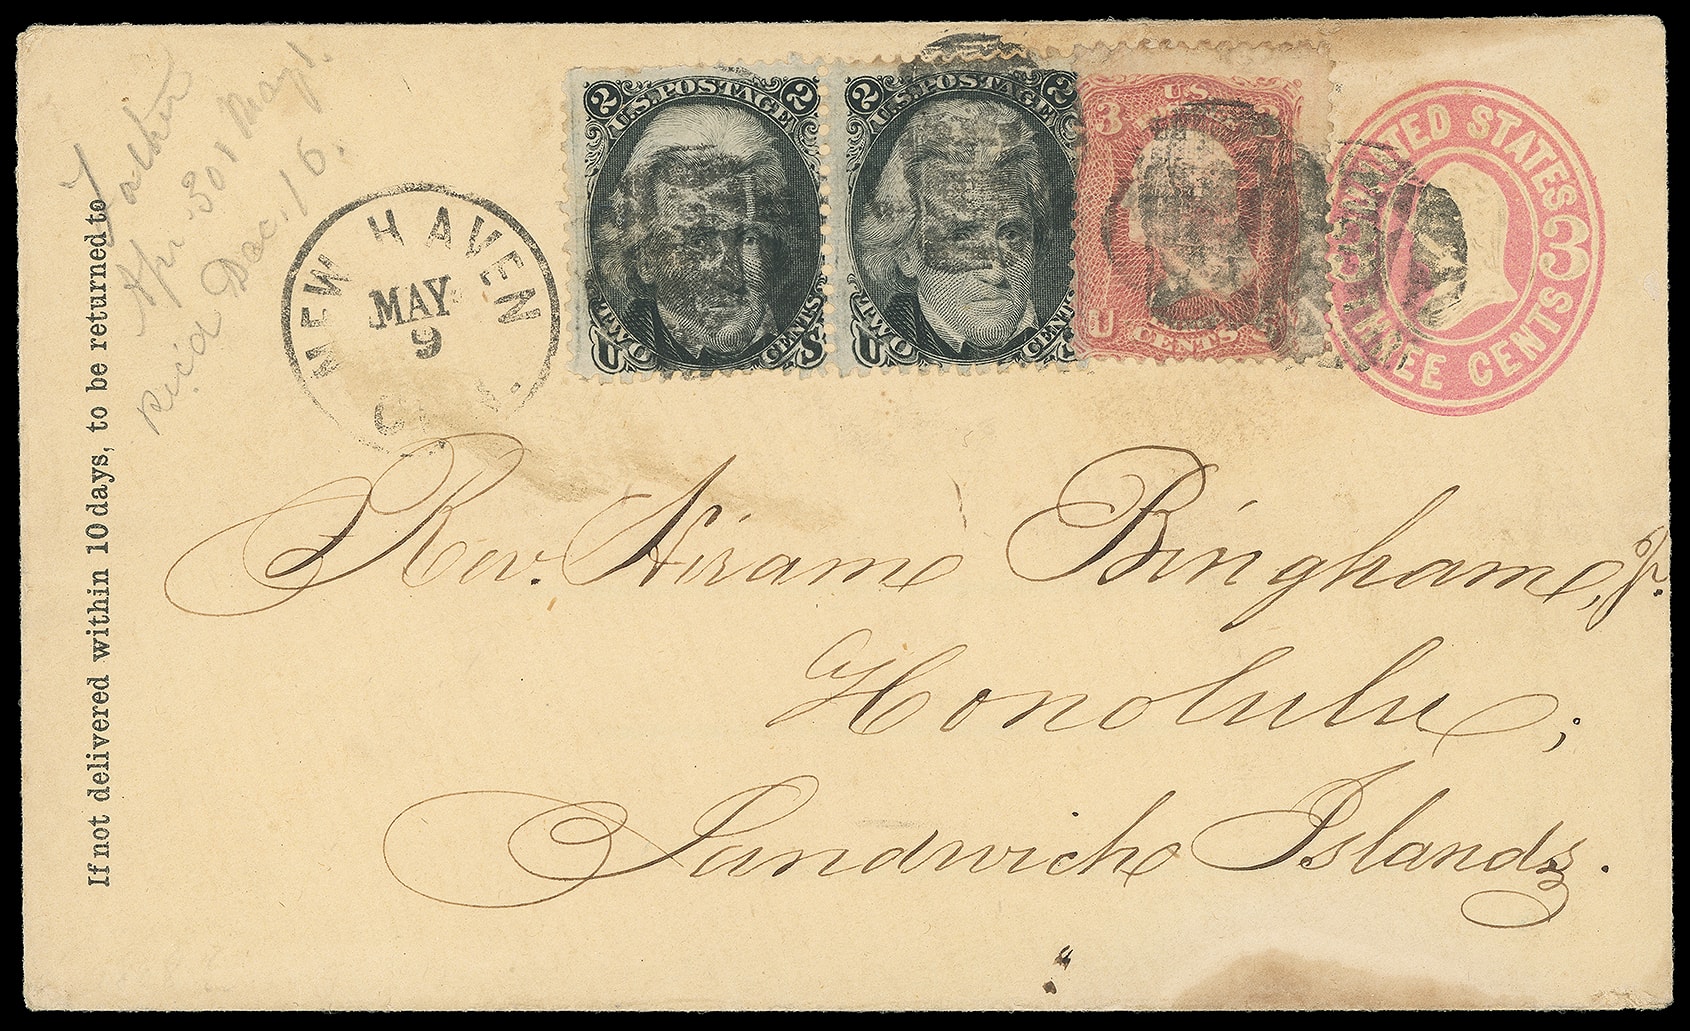 Father
Apr. 30 & May 1.
Rec'd Dec. 16.
If not delivered within 10 days, to be returned to
NEW HAVEN
MAY
9
2 2
U.S. POSTAGE
U TWO CENTS S
2 2
U.S. POSTAGE
U TWO CENTS
3 3
U.S.
U CENTS
UNITED STATES
3
THREE CENTS
Rev. Hiram Bingham, Jr.
Honolulu;
Sandwich Islands.